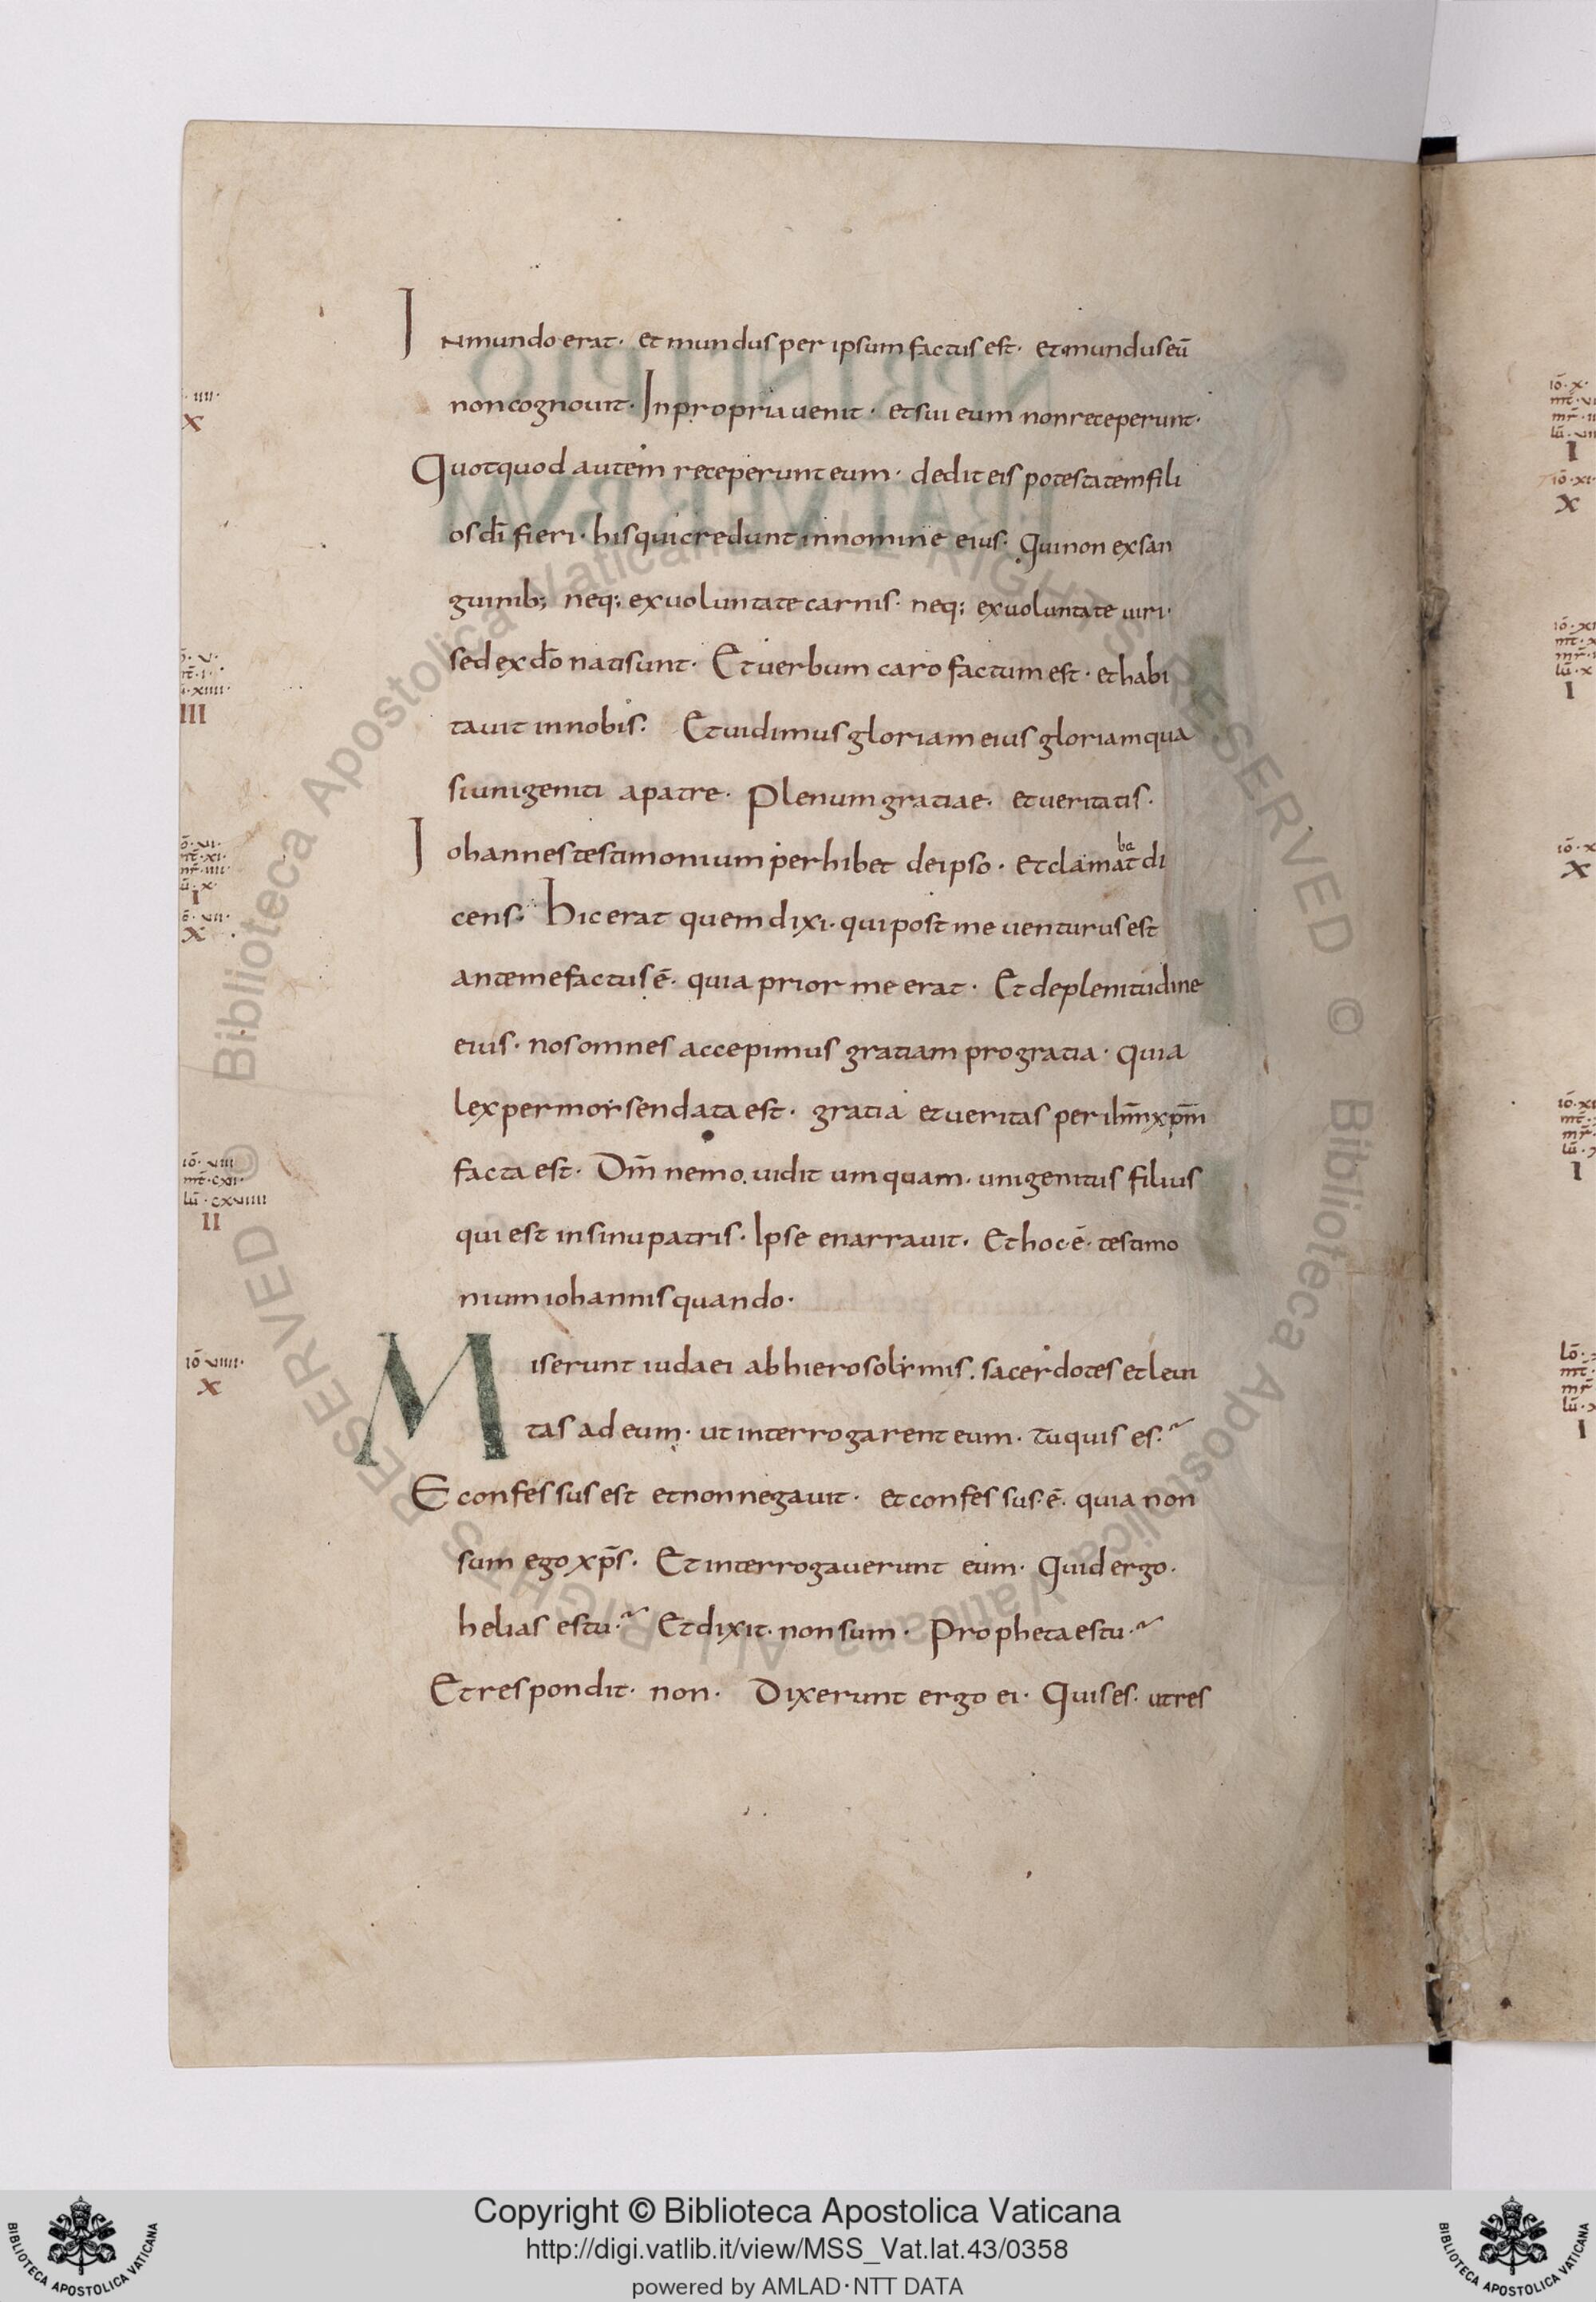 In mundo erat· et mundus per ipsum factus est· et mundus eū
non cognouit· In propria uenit· et sui eum non receperunt·
Quotquod autem receperunt eum· dedit eis potestatem fili
os dī fieri· his qui credunt in nomine eius· Qui non ex san
guinib; neq; ex uoluntate carnis· neq; ex uoluntate uiri·
sed ex dō nati sunt· Et uerbum caro factum est· et habi
tauit in nobis· Et uidimus gloriam eius gloriam qua
si unigeniti a patre· Plenum gratiae· et ueritatis·
Iohannes testimonium perhibet de ipso· et clamabat di
cens· Hic erat quem dixi· qui post me uenturus est
ante me factus ē· quia prior me erat· Et de plenitudine
eius· nos omnes accepimus gratiam pro gratia· quia
lex per moysen data est· gratia et ueritas per ihm̄ xpm̄
facta est· Dm̄ nemo uidit umquam· unigenitus filius
qui est in sinu patris· Ipse enarrauit· Et hoc·ē· testimo
nium iohannis quando·
Miserunt iudaei ab hierosolymis· sacerdotes et leui
tas ad eum· ut interrogarent eum· tu quis es·
E confessus est et non negauit· et confessus·ē· quia non
sum ego xp̄s· Et interrogauerunt eum· Quid ergo·
helias es tu· Et dixit· non sum· Propheta es tu·
Et respondit· non· Dixerunt ergo ei· Quis es· ut res
·IIII·
X
·XIIII·
III
·X·
I
X
iō·VIII
mt̄·CXII·
lū·CXVIIII
II
iō VIIII·
X
Copyright © Biblioteca Apostolica Vaticana
http://digi.vatlib.it/view/MSS_Vat.lat.43/0358
powered by AMLAD·NTT DATA
BIBLIOTECA APOSTOLICA VATICANA
BIBLIOTECA APOSTOLICA VATICANA
© Biblioteca Apostolica Vaticana ALL RIGHTS RESERVED
© Biblioteca Apostolica Vaticana ALL RIGHTS RESERVED